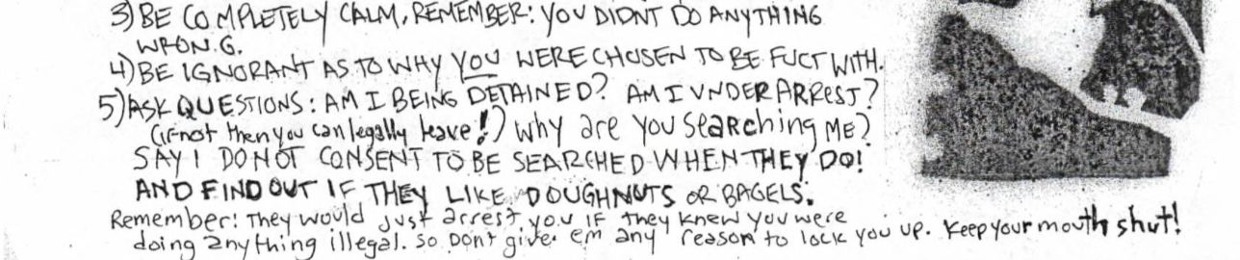 3) BE COMPLETELY CALM, REMEMBER: YOU DIDNT DO ANYTHING
WRON.G.
4) BE IGNORANT AS TO WHY YOU WERE CHOSEN TO BE FUCT WITH.
5) ASK QUESTIONS: AM I BEING DETAINED? AM I UNDER ARREST?
(if not then you can legally leave!) Why are you searching ME?
SAY I DO NOT CONSENT TO BE SEARCHED WHEN THEY DO!
AND FIND OUT IF THEY LIKE DOUGHNUTS OR BAGELS.
Remember: They would just arrest you if they knew you were
doing anything illegal. so Dont give em any reason to lock you up. Keep your mouth shut!